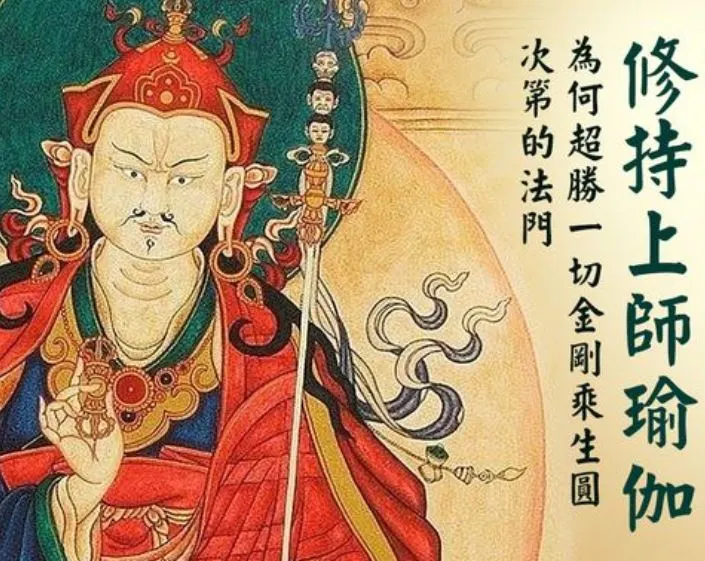 修持上師瑜伽
為何超勝一切金剛乘生圓
次第的法門